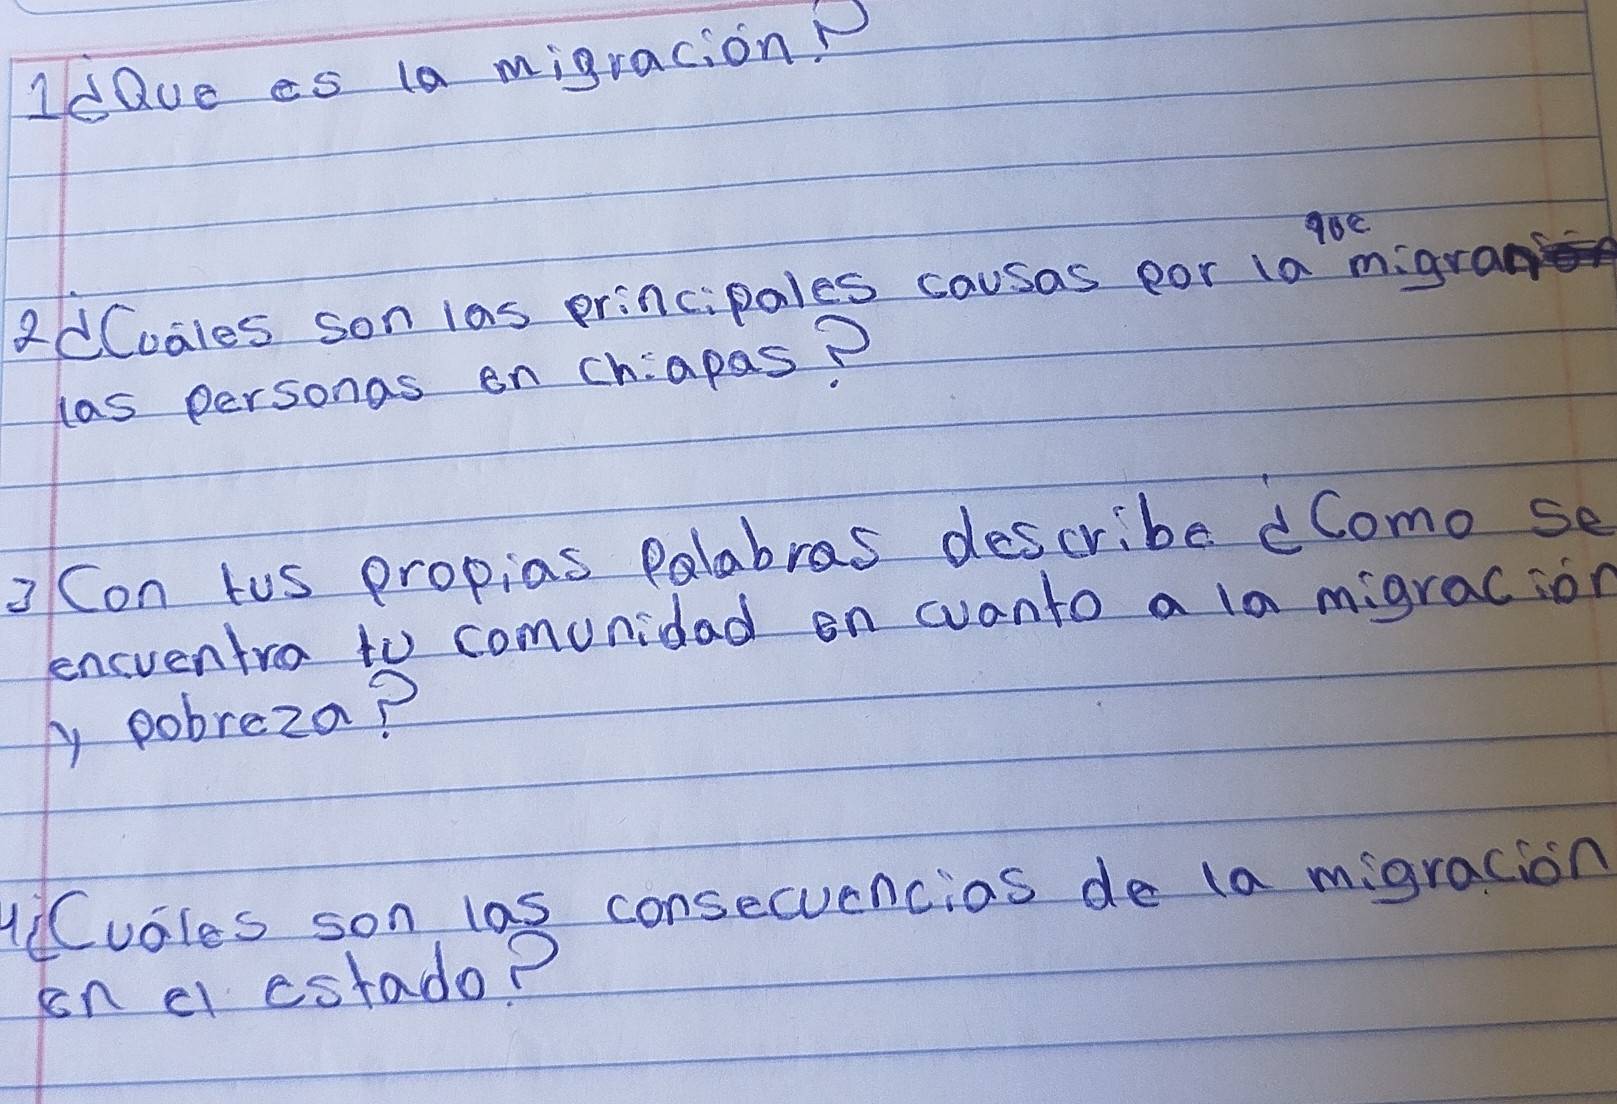 1 ¿Que es la migración?
que
2 ¿Cuáles son las principales causas por la migran
las personas en chiapas?
3 Con tus propias palabras describe ¿Como se
encuentra tu comunidad en cuanto a la migración
y pobreza?
4 ¿Cuáles son las consecuencias de la migración
en el estado?